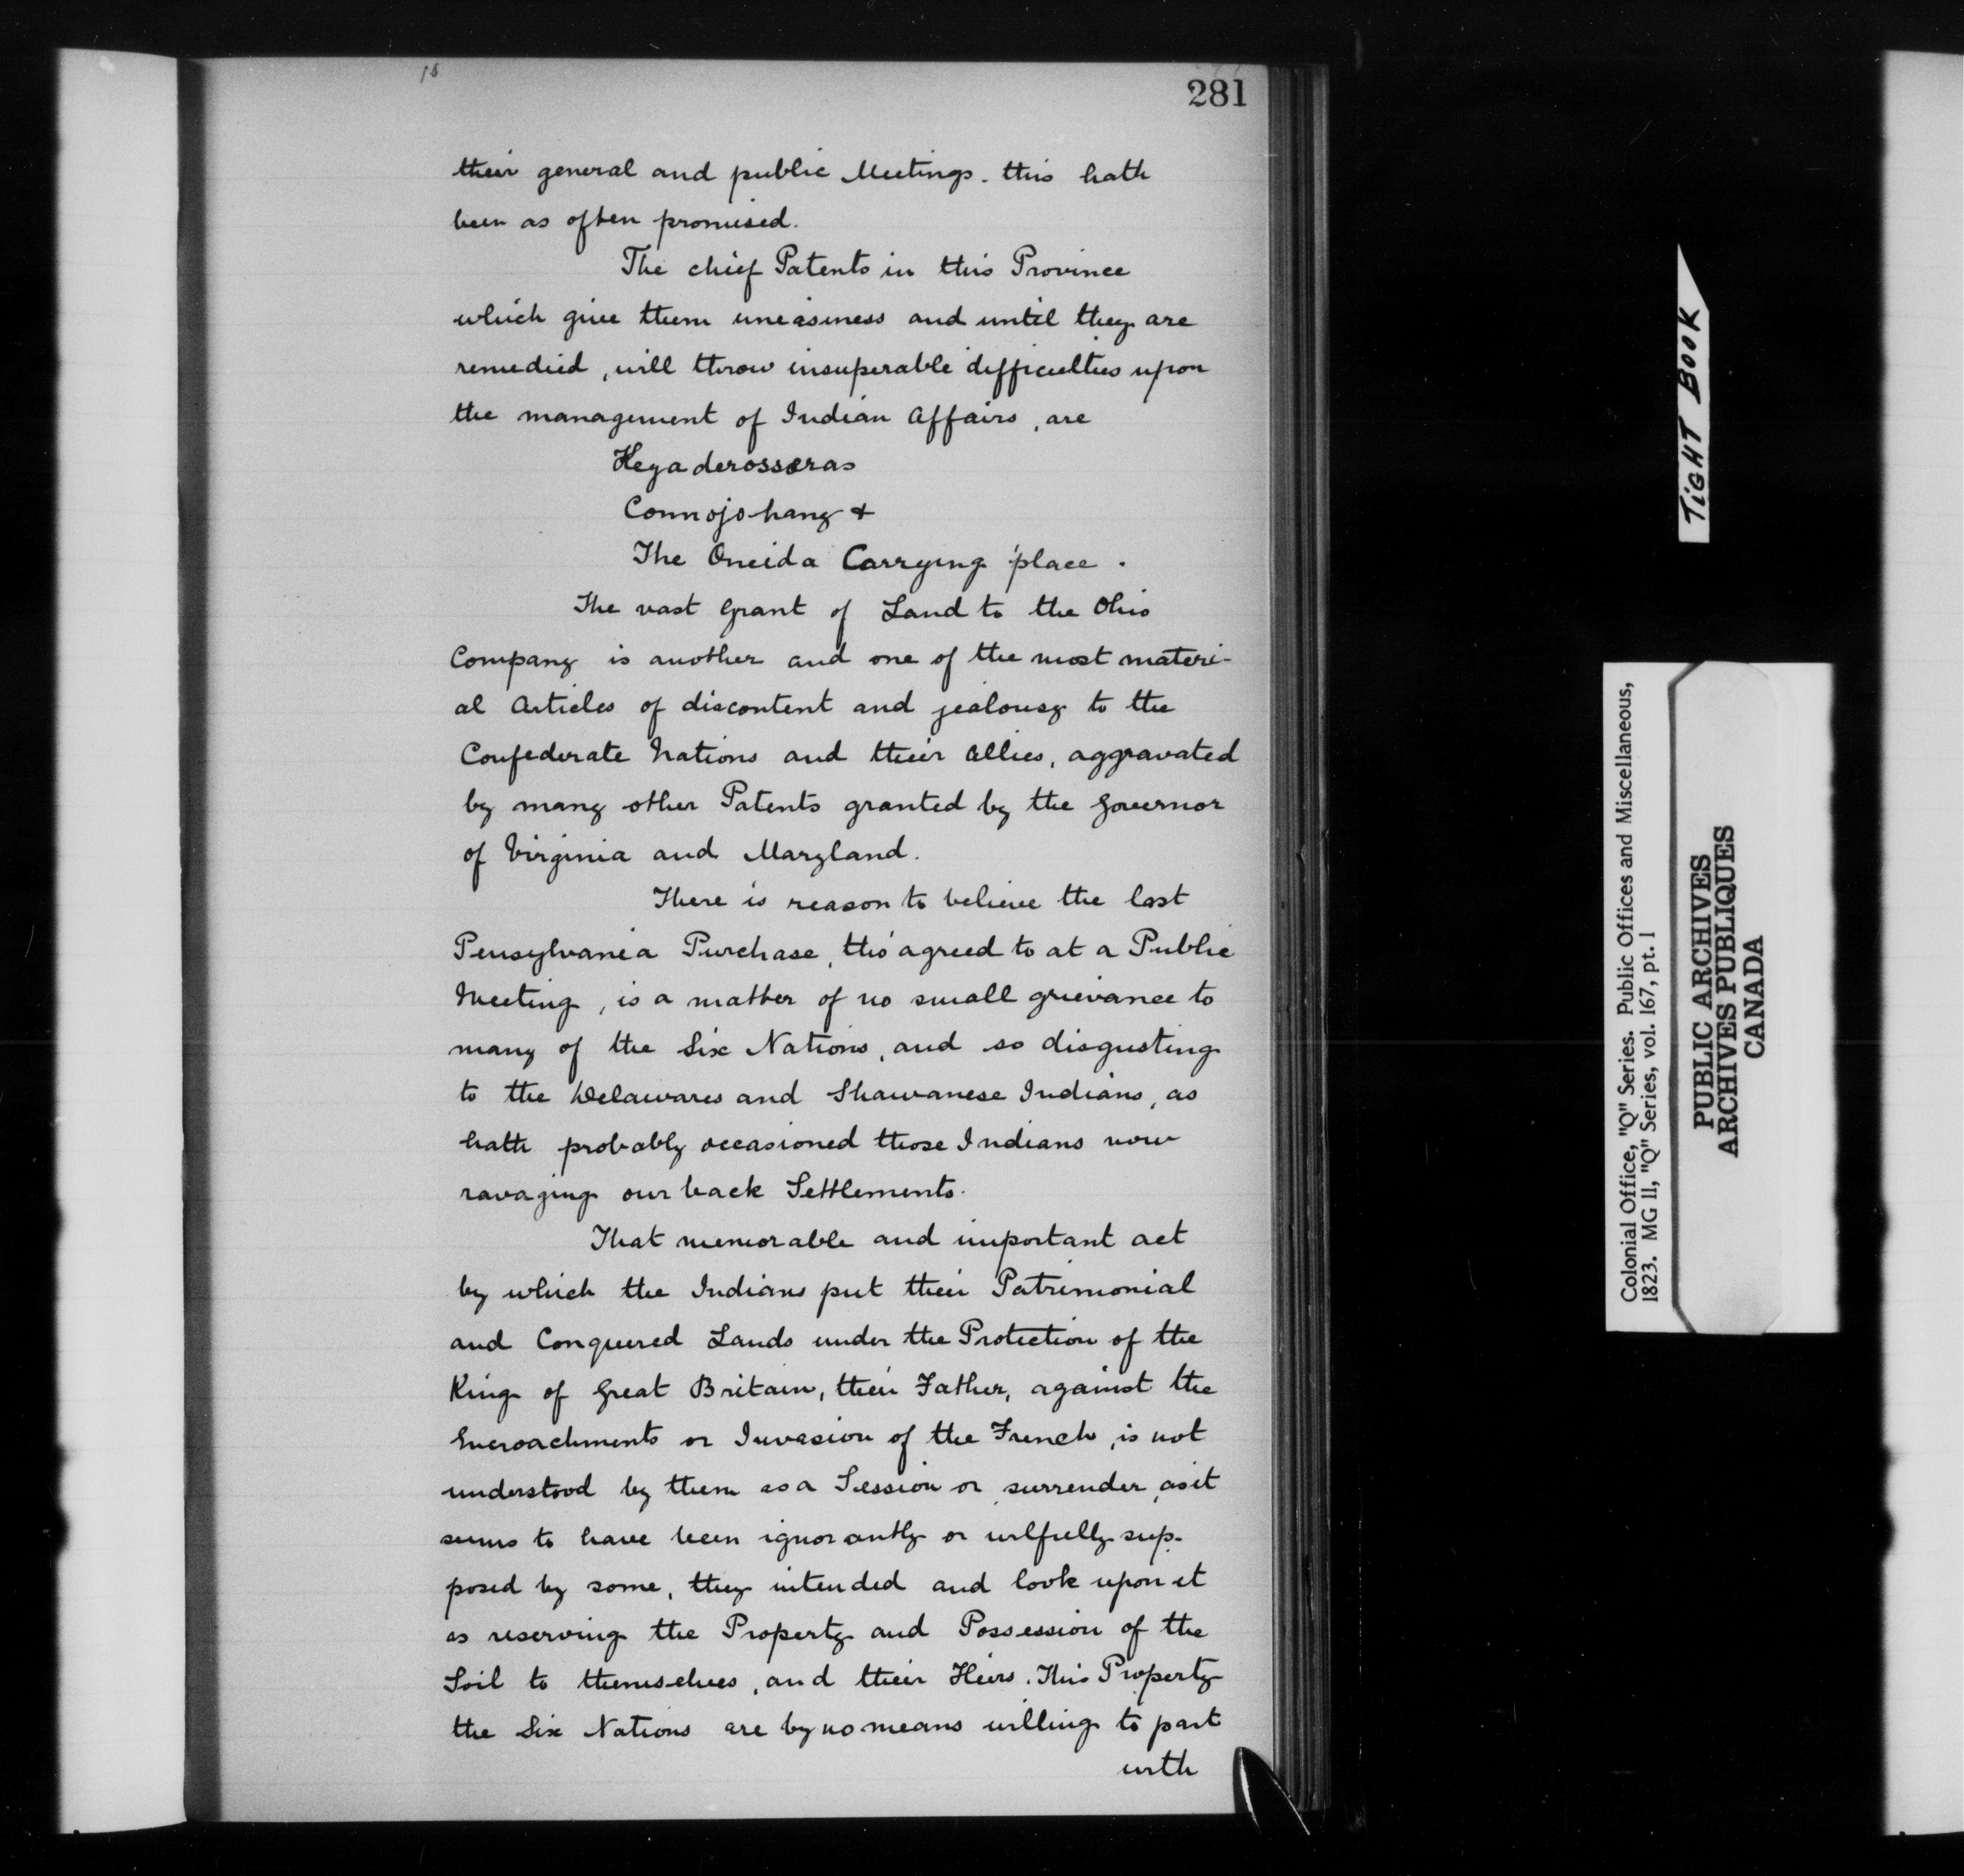 18
281
their general and public Meetings. this hath
been as often promised.
The chief Patents in this Province
which give them uneasiness and until they are
remedied, will throw insuperable difficulties upon
the management of Indian Affairs, are
Heyaderosseras
Connojohang &
The Oneida Carrying place.
The vast Grant of Land to the Ohio
Company is another and one of the most materi-
al Articles of discontent and jealousy to the
Confederate Nations and their Allies, aggravated
by many other Patents granted by the Governor
of Virginia and Maryland.
There is reason to believe the last
Pensylvania Purchase, tho' agreed to at a Public
Meeting, is a matter of no small grievance to
many of the Six Nations, and so disgusting
to the Delawares and Shawanese Indians, as
hath probably occasioned those Indians now
ravaging our back Settlements.
That memorable and important act
by which the Indians put their Patrimonial
and Conquered Lands under the Protection of the
King of Great Britain, their Father, against the
Encroachments or Invasion of the French, is not
understood by them as a Session or surrender, as it
seems to have been ignorantly or wilfully sup-
posed by some, they intended and look upon it
as reserving the Property and Possession of the
Soil to themselves, and their Heirs. This Property
the Six Nations are by no means willing to part
with
TiGHT BOOK
Colonial Office, "Q" Series. Public Offices and Miscellaneous,
1823. MG 11, "Q" Series, vol. 167, pt. 1
PUBLIC ARCHIVES
ARCHIVES PUBLIQUES
CANADA